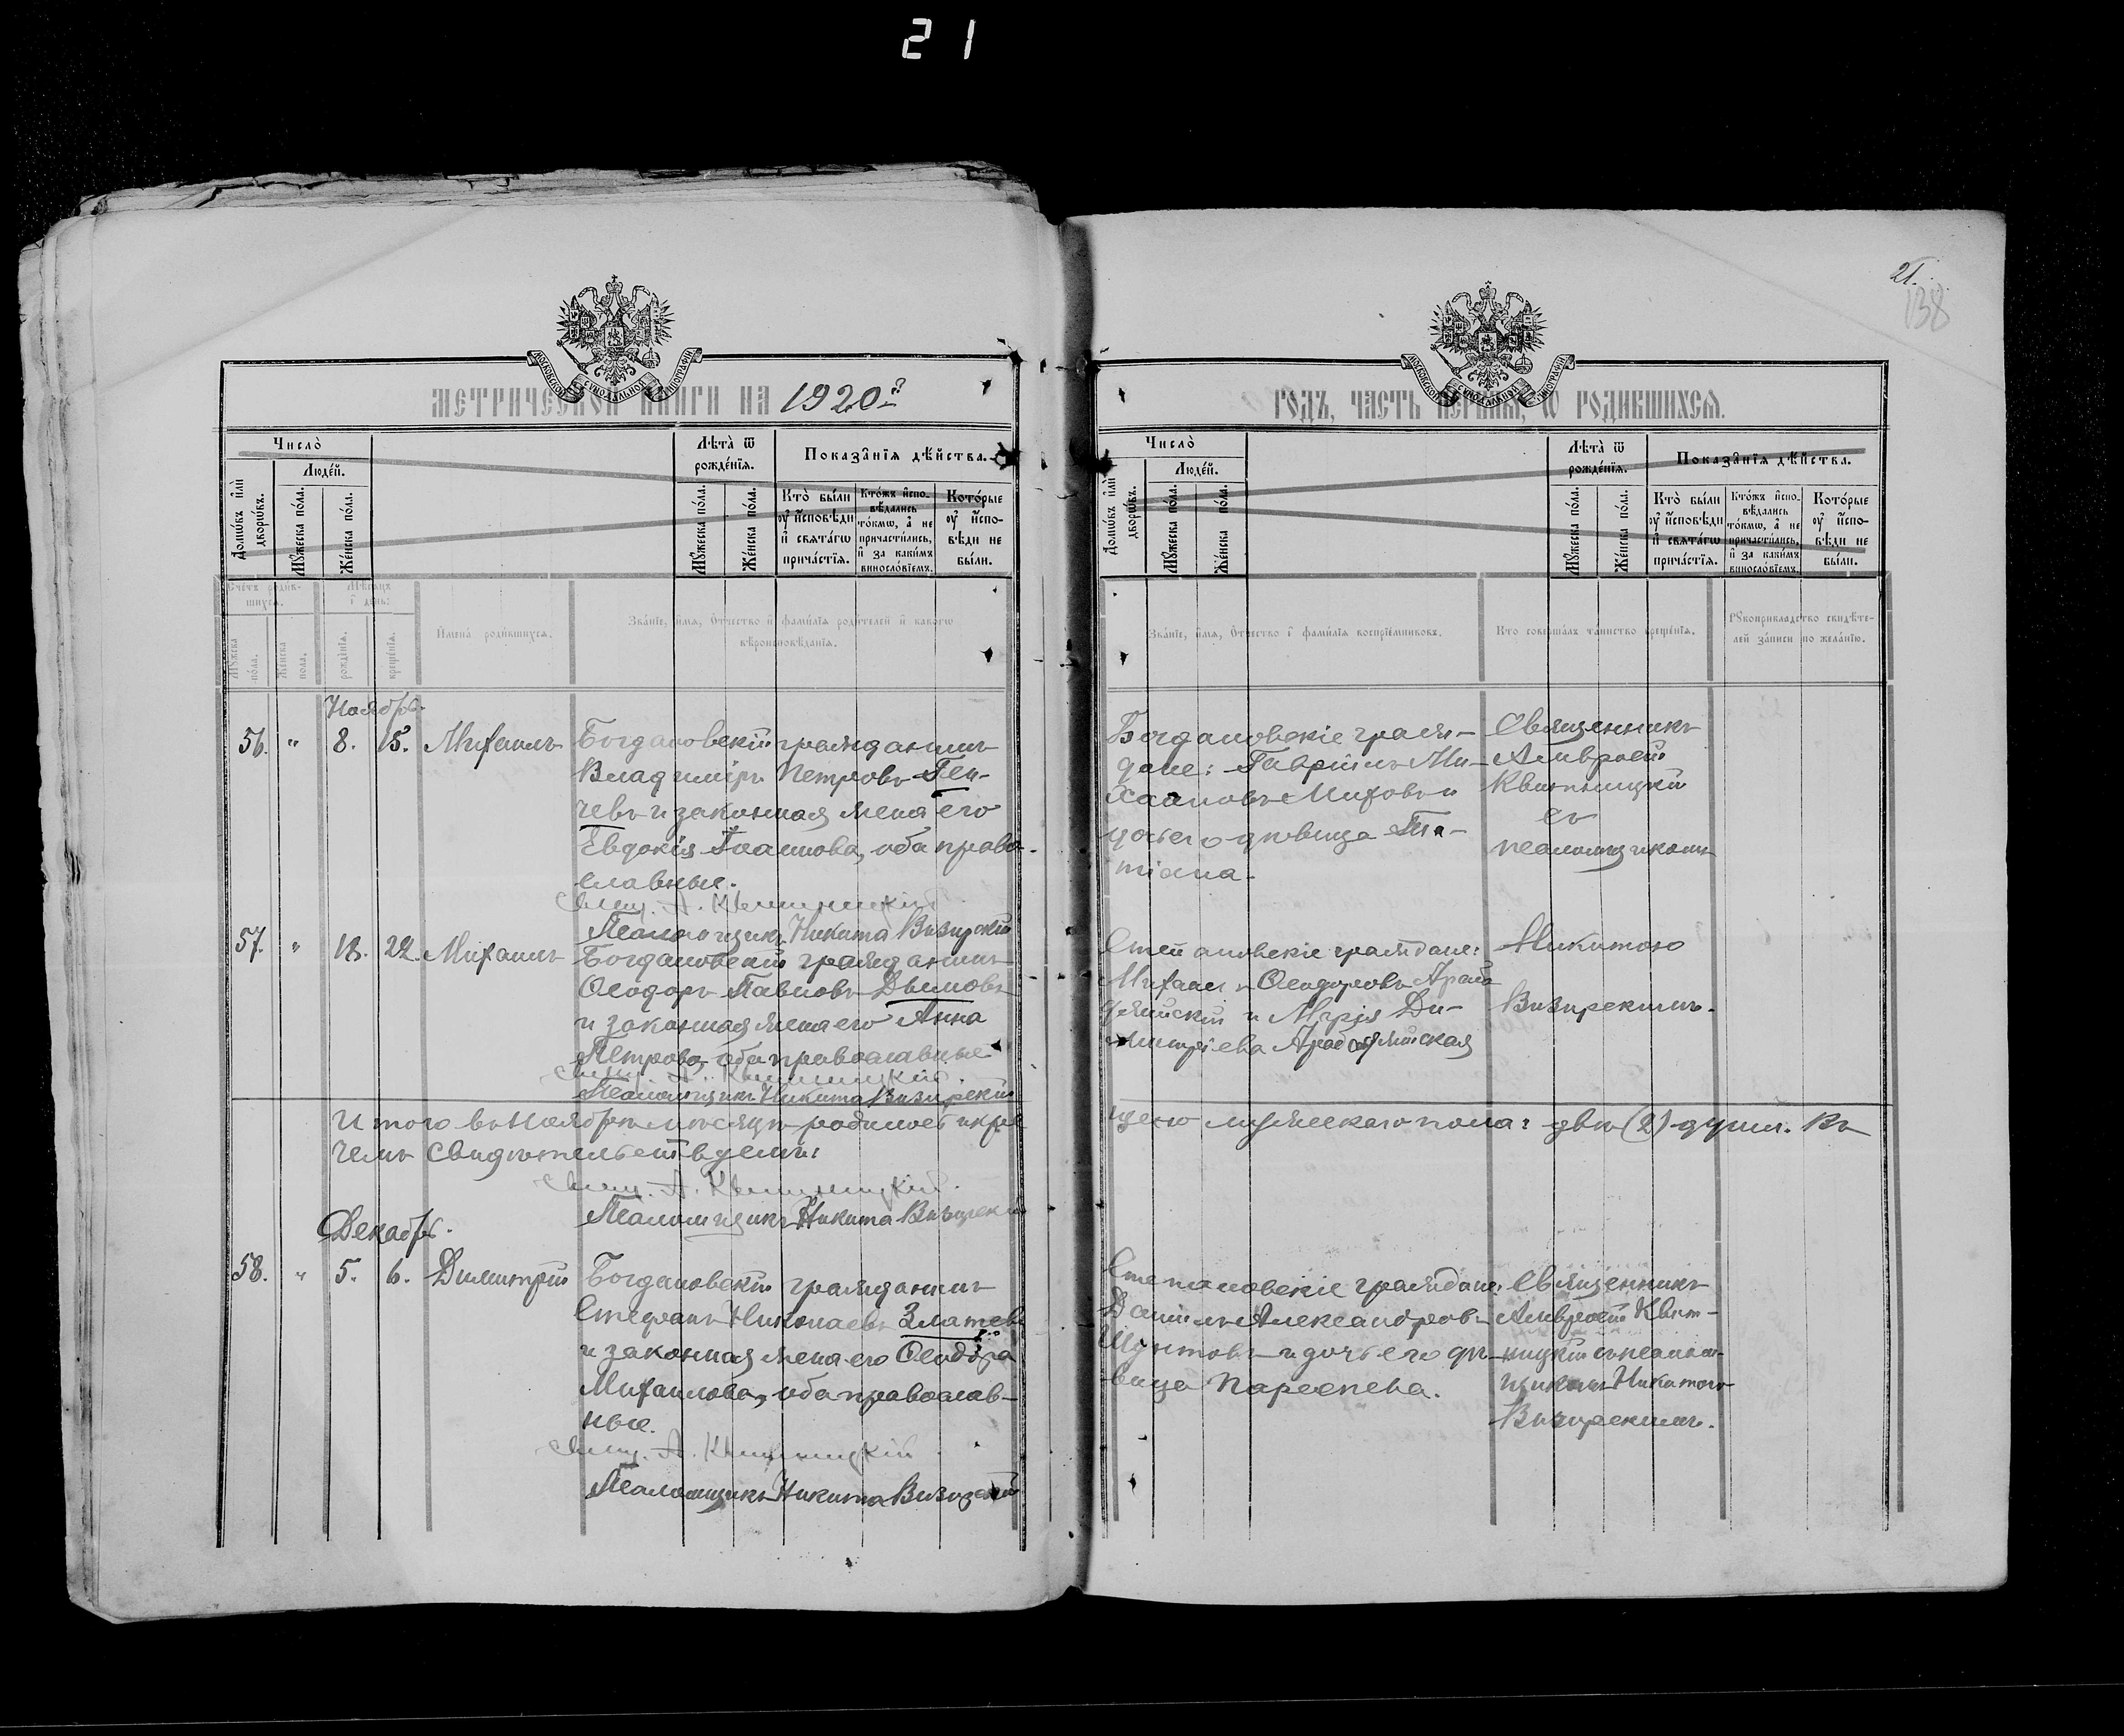 21
21.
138
МОСКОВСКОЙ СѴНОДАЛЬНОЙ ТИПОГРАФІИ
МЕТРИЧЕСКОЙ КНИГИ НА 1920й
Число̀
Людей.
Домѡвъ и҆лѝ дворѡвъ.
Мꙋжеска по́ла.
Же́нска по́ла.
Лѣ́та ѿ рожде́нїѧ.
Мꙋжеска по́ла.
Же́нска по́ла.
Показа̑нїѧ дѣ́йства.
Кто̀ бы́ли ᲂу҆ и҆спо́вѣди и҆ свѧта́гѡ прича́стїѧ.
Кто́жъ и҆спо-
вѣ́дались
то́кмѡ, а҆ не
причасти́лись,
и҆ за каки́мъ
виносло́вїемъ.
Кото́рые
ᲂу҆ и҆спо-
вѣди не
бы́ли.
Счетъ родив-
шихсѧ.
Мѣсѧцъ
і день:
Мꙋжеска пола.
Женска пола.
рожденїѧ.
крещенїѧ.
Имена родившихсѧ.
Званїе, имѧ, отчество и фамилїѧ родителей и какогѡ
вѣроисповѣданїѧ.
Ноябрь.
56. " 8. 15. Михаилъ Богдановскій гражданинъ
Владиміръ Петровъ Ген-
чевъ и законная жена его
Евдокія Иванова, оба право-
славные.
Свящ. А. Квитницкій
Псаломщикъ Никита Визирскій
57. " 18. 22. Михаилъ Богдановскій гражданинъ
Ѳеодоръ Павловъ Дымовъ
и законная жена его Анна
Петрова, оба православные
Свящ. А. Квитницкій
Псаломщикъ Никита Визирскій
Итого въ Ноябрѣ мѣсяцѣ родилось и кре-
чемъ свидѣтельствуемъ:
Свящ. А. Квитницкій.
Псаломщикъ Никита Визирскій
Декабрь.
58. " 5. 6. Димитрій Богдановскій гражданинъ
Стефанъ Николаевъ Златевъ
и законная жена его Ѳеодора
Михаилова, оба православ-
ные.
Свящ. А. Квитницкій
Псаломщикъ Никита Визирскій
ГОДЪ, ЧАСТЬ ПЕРВАѦ, Ѡ РОДИВШИХСѦ.
МОСКОВСКОЙ СѴНОДАЛЬНОЙ ТИПОГРАФІИ
Число̀
Людей.
Домѡвъ и҆лѝ дворѡвъ.
Мꙋжеска по́ла.
Же́нска по́ла.
Лѣ́та ѿ рожде́нїѧ.
Мꙋжеска по́ла.
Же́нска по́ла.
Показа̑нїѧ дѣ́йства.
Кто̀ бы́ли ᲂу҆ и҆спо́вѣди и҆ свѧта́гѡ прича́стїѧ.
Кто́жъ и҆спо-
вѣ́дались
то́кмѡ, а҆ не
причасти́лись,
и҆ за каки́мъ
виносло́вїемъ.
Кото́рые
ᲂу҆ и҆спо-
вѣди не
бы́ли.
Званїе, имѧ, отчество і фамилїѧ воспрїемниковъ.
Кто совершалъ таинство крещенїѧ.
Рꙋкоприкладство свидѣте-
лей записи по желанїю.
Богдановскіе граж-
дане: Гавріилъ Ми-
хаиловъ Митовъ и
дочь его дѣвица Та-
тіана.
Священникъ
Амвросій
Квитницкій
съ
псаломщикомъ
Степановскіе граждане:
Михаилъ Ѳеодоровъ Араба-
джійскій и Марія Ди-
митріева Арабаджійская
Никитою
Визирскимъ.
щено мужескаго пола: двѣ (2) души. Въ
Степановскіе граждане:
Даніилъ Александровъ
Шунтовъ и дочь его дѣ-
вица Параскева.
Священникъ
Амвросій Квит-
ницкій съ псалом-
щикомъ Никитою
Визирскимъ.